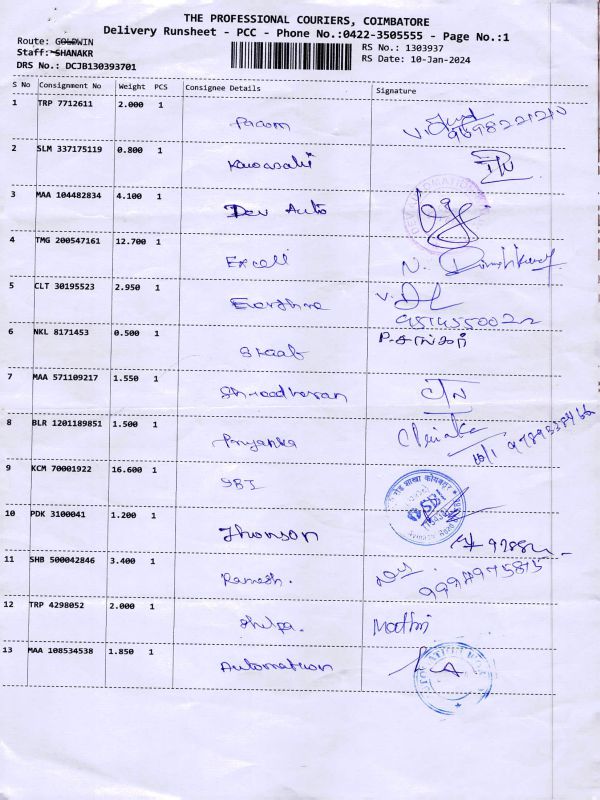 THE PROFESSIONAL COURIERS, COIMBATORE
Delivery Runsheet - PCC - Phone No.:0422-3505555 - Page No.:1
Route: GOLDWIN
Staff: SHANAKR
DRS No.: DCJB130393701
RS No.: 1303937
RS Date: 10-Jan-2024
S No Consignment No Weight PCS Consignee Details Signature
1 TRP 7712611 2.000 1
2 SLM 337175119 0.800 1 Kawasaki
3 MAA 104482834 4.100 1 Dev Auto
4 TMG 200547161 12.700 1 Excell
5 CLT 30195523 2.950 1
9514550022
6 NKL 8171453 0.500 1 P.சங்கர்
7 MAA 571109217 1.550 1
8 BLR 1201189851 1.500 1 Priyanka
9 KCM 70001922 16.600 1 SBI SBI
10 PDK 3100041 1.200 1 Jhonson
11 SHB 500042846 3.400 1 Ramesh. 9994975815
12 TRP 4298052 2.000 1 Shilpa. Mathi
13 MAA 108534538 1.850 1 Automation